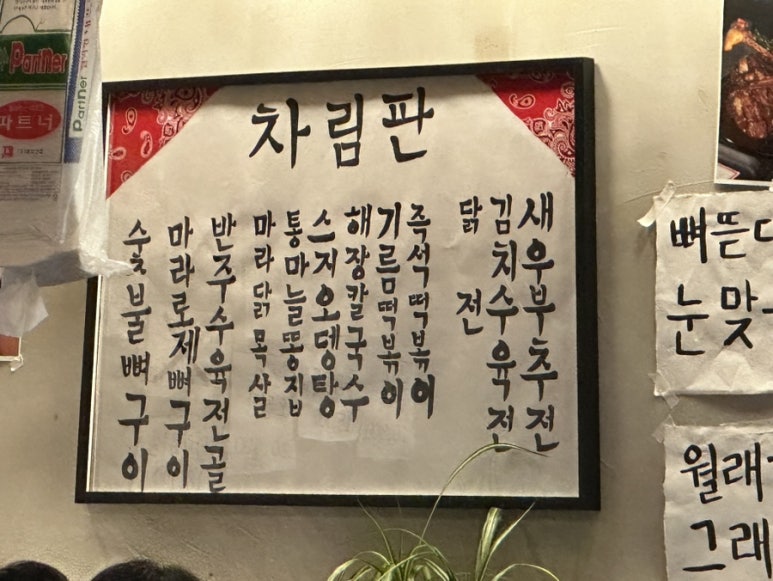 Partner
파트너
Partner
차림판
새우부추전
김치수육전
닭전
즉석떡볶이
기름떡볶이
해장칼국수
스지오뎅탕
통마늘똥집
마라닭목살
반주수육전골
마라로제뼈구이
숯불뼈구이
뼈뜯다
눈맞
월래
그래